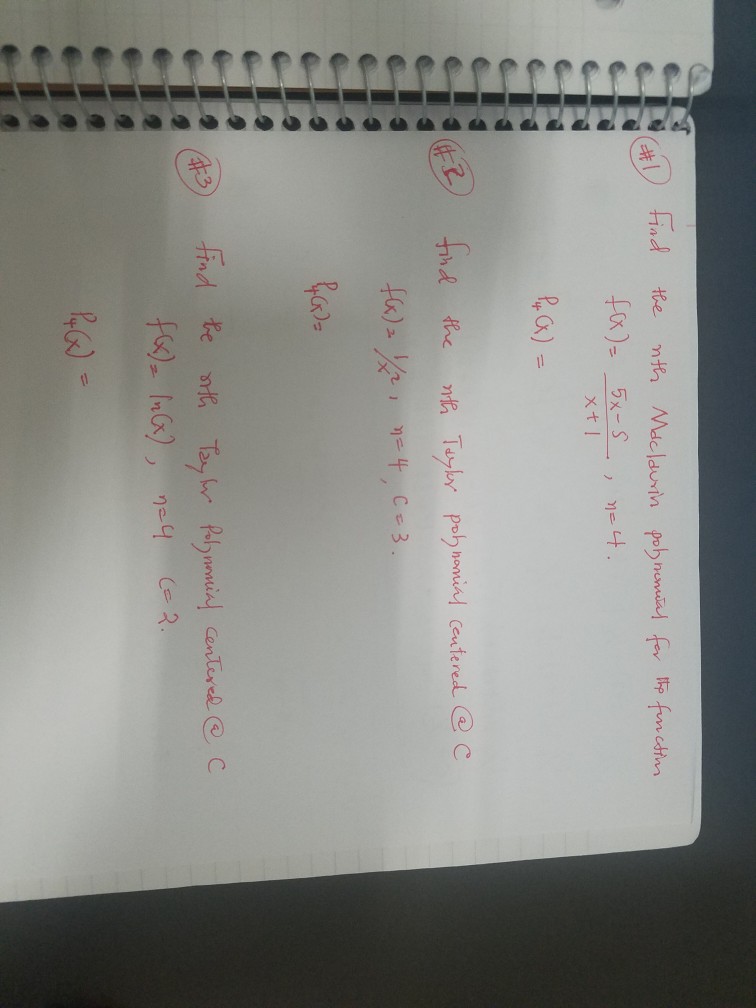 #1 Find the nth Maclaurin polynomial for the function
f(x) = 5x-5/x+1, n=4.
P4(x) =
#2 find the nth Taylor polynomial centered @ C
f(x) = 1/x², n=4, C=3.
P4(x) =
#3 Find the nth Taylor Polynomial centered @ C
f(x) = ln(x), n=4 C=2.
P4(x) =